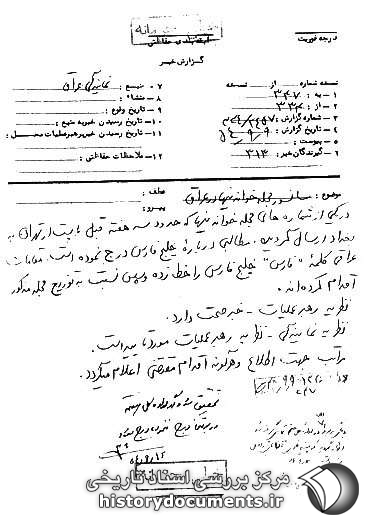 محرمانه
طبقه‌بندی حفاظتی
درجه فوریت
گزارش خبر
نسخه شماره از نسخه
۱ – به : ۳۴۷
۲ – از : ۳۳۴
۳ – شماره گزارش
۴ – تاریخ گزارش
۵ – پیوست :
۶ – گیرندگان خبر : ۳۱۳
۷ – منبع : نمایندگی عراق
۸ – منشاء :
۹ – تاریخ وقوع :
۱۰ – تاریخ رسیدن خبر به منبع :
۱۱ – تاریخ رسیدن خبر به رهبر عملیات محل :
۱۲ – ملاحظات حفاظتی :
موضوع : سانسور مجله خواندنیها در عراق
عطف :
پیرو :
در یکی از شماره های مجله خواندنیها که حدود سه هفته قبل با پست از تهران به
بغداد ارسال گردیده مطالبی درباره خلیج فارس درج نموده است مقامات
عراقی کلمه "فارس" خلیج فارس را خط زده و سپس نسبت به توزیع مجله مذکور
اقدام کرده‌اند.
نظریه رهبر عملیات - خبر صحت دارد.
نظریه نمایندگی - نظریه رهبر عملیات مورد تایید است.
مراتب جهت اطلاع و هرگونه اقدام مقتضی اعلام میگردد.
مرکز بررسی اسناد تاریخی
historydocuments.ir